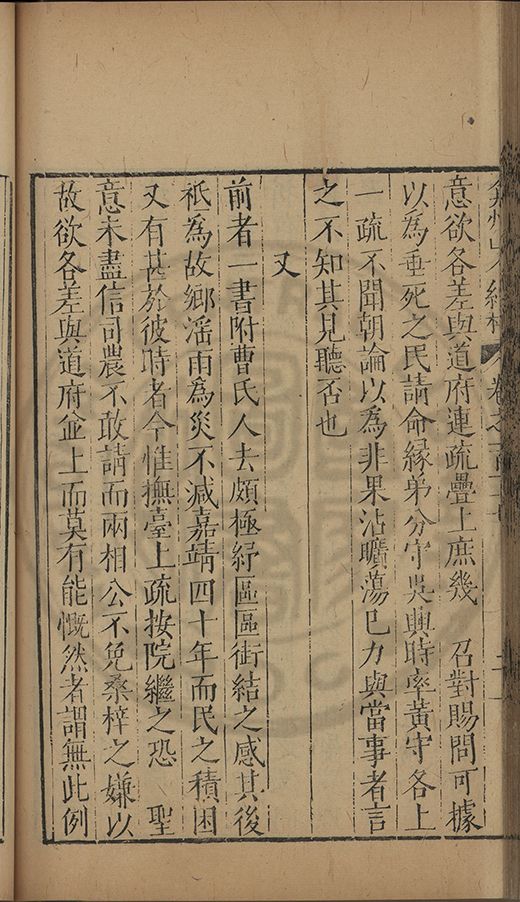 弇州山人續稿 卷之一百
意欲各差與道府連疏疊上庶幾 召對賜問可據
以為垂死之民請命緣弟分守吳興時率黃守各上
一疏不聞朝論以為非果沾曠蕩已力與當事者言
之不知其見聽否也
又
前者一書附曹氏人去頗極紓區區銜結之感其後
祇為故鄉滛雨為災不減嘉靖四十年而民之積困
又有甚於彼時者今惟撫臺上疏按院繼之恐 聖
意未盡信司農不敢請而兩相公不免桑梓之嫌以
故欲各差與道府並上而莫有能慨然者謂無此例